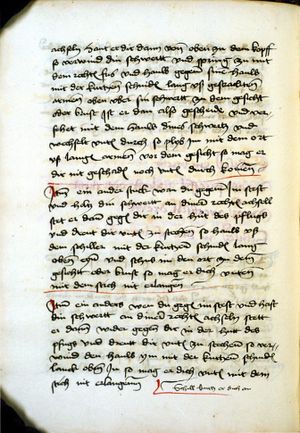 achseln Haut er dir dann von oben zu dem kopff
so verwind din schwertt vnd spring zu mit
dem rechten fuß vnd haw gegen sine hawb
mit der kurtzen schnid lang vß gestrackten
armen oben über sin schwertt zu dem gesicht
oder brust ist er dan also gescheide vnd ver
setzt mit dem haw dines schwertz vnd
wechselt vnden durch so plyb Im mit dem ort
vß langen armen vor dem gesicht so mag er
dir nit geschaden noch vnden durch komen
Item ein ander stuck wan du gegen Im ficst
vnd haſt din schwertt an diner rechten achsell
stet er dan gegen dir in der hut des pflugs
vnd drent dir vnden zu stechen so haw vß
dem schiller mit der kurtzen schnide lang
oben ein vnd schuß im den ort zu dem
gesicht oder brust so mag er dich vnden
mit dem stich nit erlangen
Item ein anders wan du gegen im ficst vnd hast
din schwertt an diner rechten achseln stett
er dann wider gegen dir in der hutt des
pflugs vnd drewtt dir vnden zu stechen so ver
wind den haw ym mit der kurtzen schnid
lanck oben In so mag er dich vnden mit dem
stich nit erlangenn
Schill kurtz er dich an